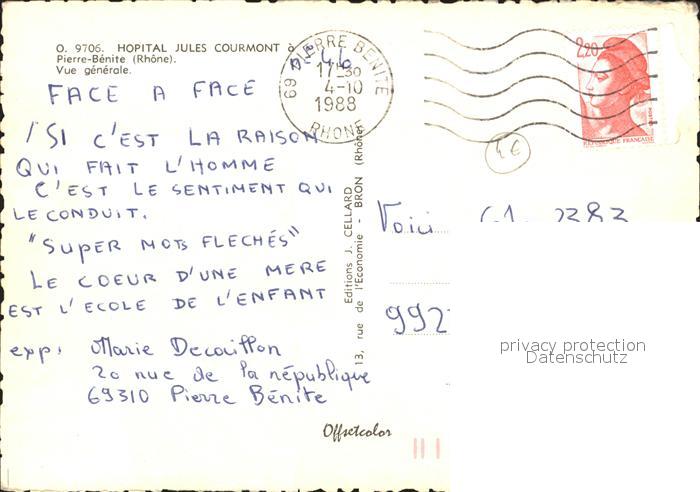 O. 9706. HOPITAL JULES COURMONT à
Pierre-Bénite (Rhône).
Vue générale.
69 PIERRE BENITE
17-30
4-10
1988
RHONE
2,20
REPUBLIQUE FRANÇAISE
4€
FACE A FACE
/ SI C'EST LA RAISON
QUI FAIT L'HOMME
C'EST LE SENTIMENT QUI
LE CONDUIT.
"SUPER MOTS FLECHÉS"
LE COEUR D'UNE MERE
EST L'ECOLE DE L'ENFANT
exp: Marie Decaillon
20 rue de la république
69310 Pierre Bénite
Editions J. CELLARD
13, rue de l'Economie - BRON (Rhône)
Offsetcolor
Voici
992
privacy protection
Datenschutz